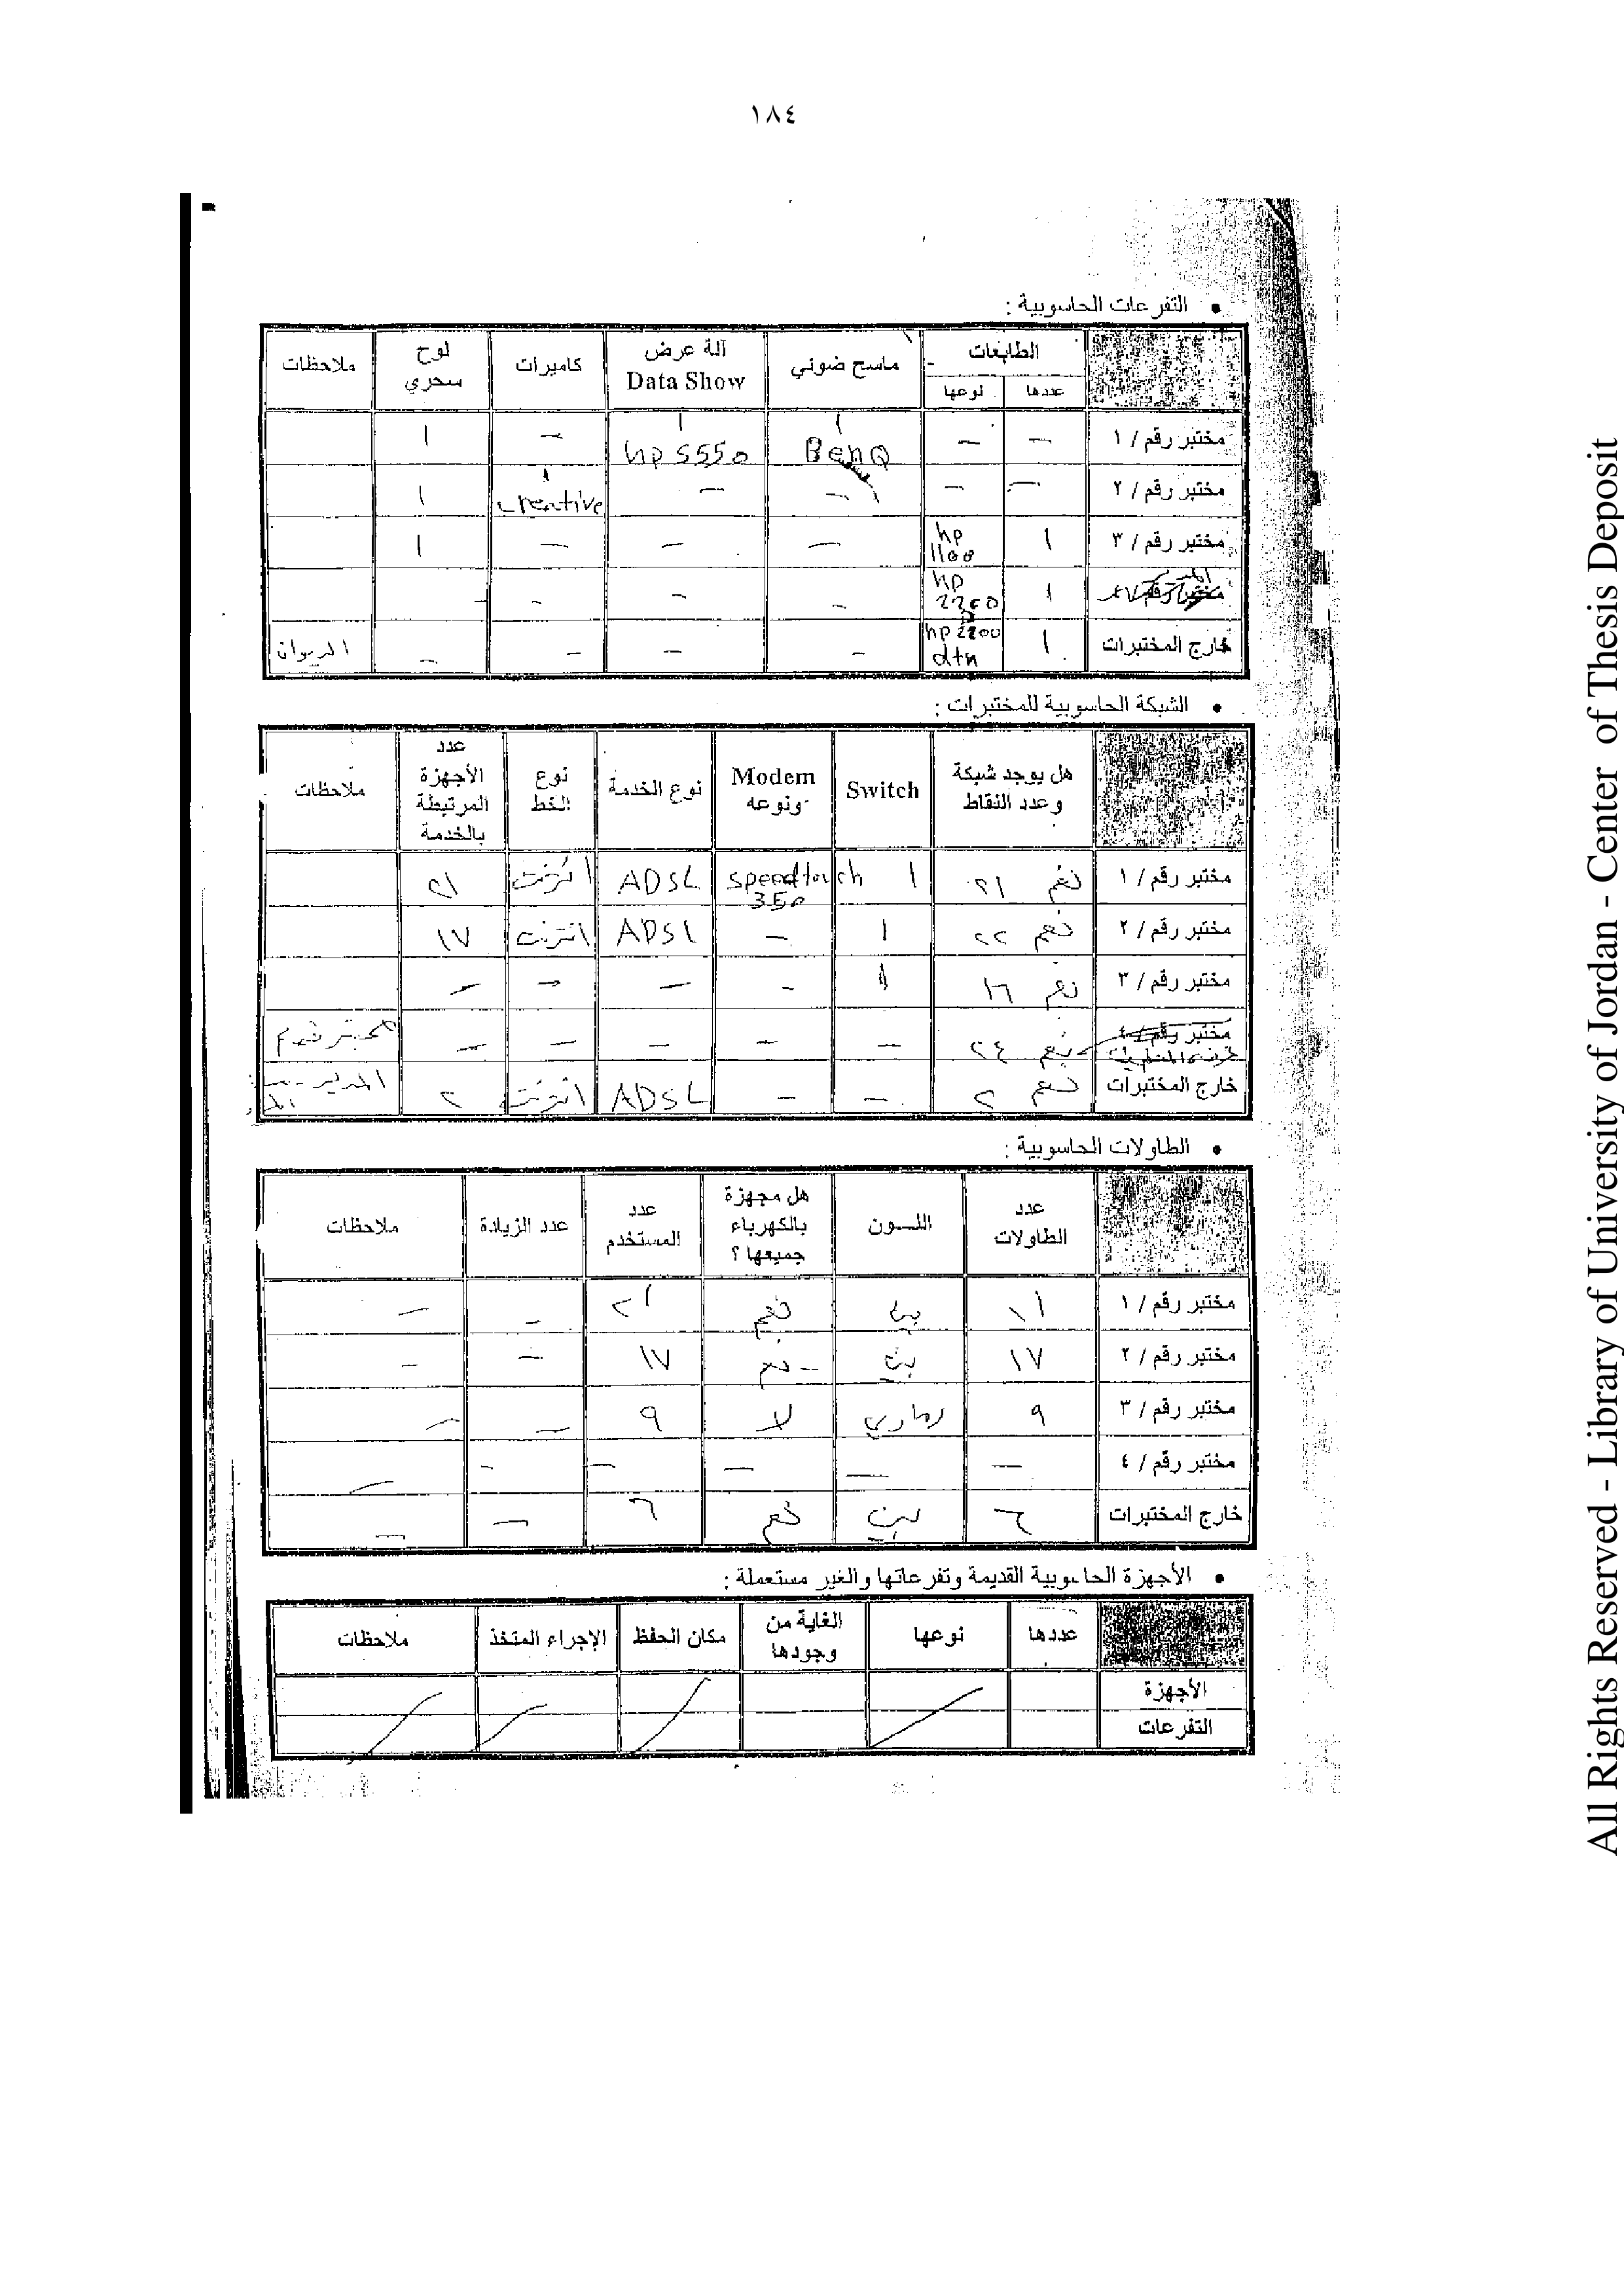 ١٨٤
• التفرعات الحاسوبية :
الطابعات ماسح ضوئي آلة عرض Data Show كاميرات لوح سحري ملاحظات
عددها نوعها
مختبر رقم / ١ — — ١ BenQ ١ hp 5550 — ١
مختبر رقم / ٢ — — — — ١ creative ١
مختبر رقم / ٣ ١ hp 1100 — — — ١
١ hp — — - —
خارج المختبرات ١ hp 2200 dtn - — — - الديوان
• الشبكة الحاسوبية للمختبرات :
هل يوجد شبكة وعدد النقاط Switch Modem ونوعه نوع الخدمة نوع الخط عدد الأجهزة المرتبطة بالخدمة ملاحظات
مختبر رقم / ١ نعم ٢١ ١ speedtouch 350 ADSL انترنت ٢١
مختبر رقم / ٢ نعم ٢٢ ١ — ADSL انترنت ١٧
مختبر رقم / ٣ نعم ١٦ ١ - — — —
مختبر رقم / ٤ نعم ٢٤ — — — — —
خارج المختبرات نعم ٢ — — ADSL انترنت ٢
• الطاولات الحاسوبية :
عدد الطاولات اللــون هل مجهزة بالكهرباء جميعها ؟ عدد المستخدم عدد الزيادة ملاحظات
مختبر رقم / ١ بني نعم ٢١ — —
مختبر رقم / ٢ ١٧ بني نعم ١٧ — —
مختبر رقم / ٣ ٩ رمادي لا ٩ — —
مختبر رقم / ٤ — — — — - —
خارج المختبرات ٦ بني نعم ٦ — —
• الأجهزة الحاسوبية القديمة وتفرعاتها والغير مستعملة :
عددها نوعها الغاية من وجودها مكان الحفظ الإجراء المتخذ ملاحظات
الأجهزة
التفرعات
All Rights Reserved - Library of University of Jordan - Center of Thesis Deposit